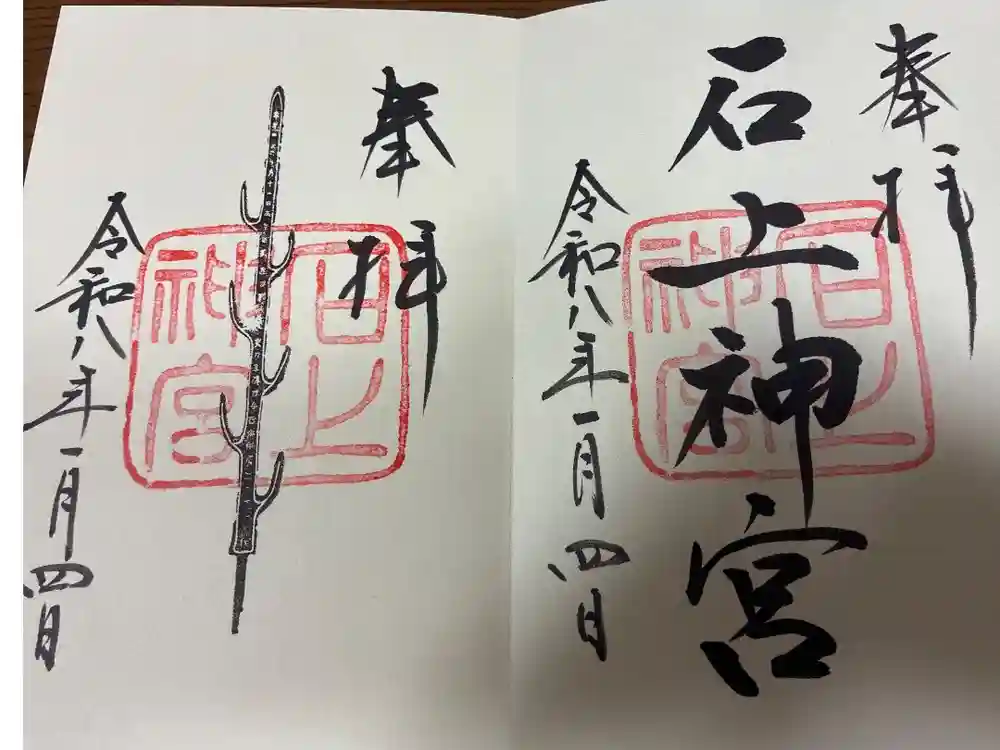 奉拝
石上神宮
石上神宮
令和八年一月四日
奉拝
石上神宮
令和八年一月四日